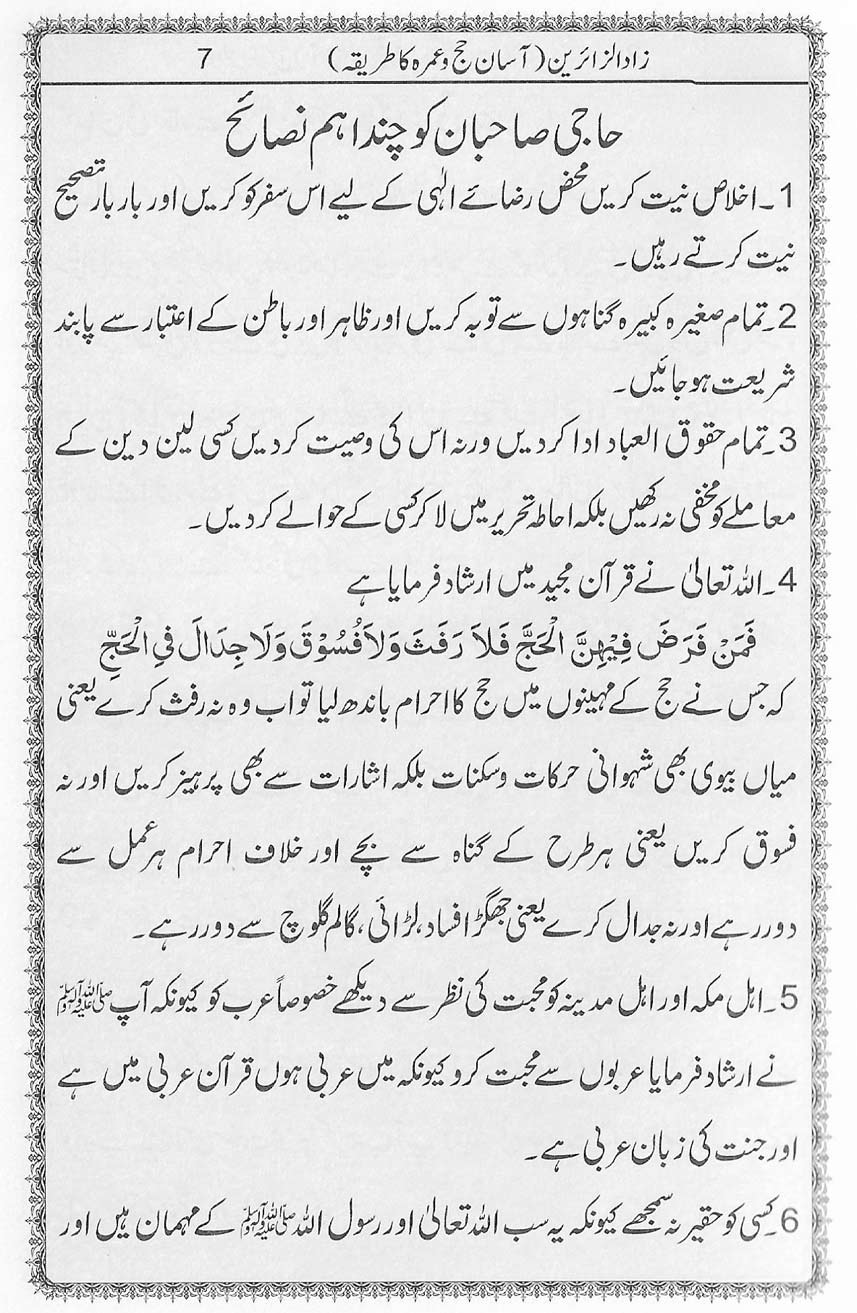 زاد الزائرین (آسان حج و عمرہ کا طریقہ) 7
حاجی صاحبان کو چند اہم نصائح
1۔ اخلاص نیت کریں محض رضائے الٰہی کے لیے اس سفر کو کریں اور بار بار تصحیح
نیت کرتے رہیں۔
2۔ تمام صغیرہ کبیرہ گناہوں سے توبہ کریں اور ظاہر اور باطن کے اعتبار سے پابند
شریعت ہو جائیں۔
3۔ تمام حقوق العباد ادا کردیں ورنہ اس کی وصیت کردیں کسی لین دین کے
معاملے کو مخفی نہ رکھیں بلکہ احاطہ تحریر میں لا کر کسی کے حوالے کردیں۔
4۔ اللہ تعالیٰ نے قرآن مجید میں ارشاد فرمایا ہے
فَمَنْ فَرَضَ فِيْهِنَّ الْحَجَّ فَلاَ رَفَثَ وَلاَ فُسُوْقَ وَلَا جِدَالَ فِي الْحَجِّ
کہ جس نے حج کے مہینوں میں حج کا احرام باندھ لیا تو اب وہ نہ رفث کرے یعنی
میاں بیوی بھی شہوانی حرکات و سکنات بلکہ اشارات سے بھی پرہیز کریں اور نہ
فسوق کریں یعنی ہر طرح کے گناہ سے بچے اور خلاف احرام ہر عمل سے
دور رہے اور نہ جدال کرے یعنی جھگڑا فساد، لڑائی، گالم گلوچ سے دور رہے۔
5۔ اہل مکہ اور اہل مدینہ کو محبت کی نظر سے دیکھے خصوصاً عرب کو کیونکہ آپ ﷺ
نے ارشاد فرمایا عربوں سے محبت کرو کیونکہ میں عربی ہوں قرآن عربی میں ہے
اور جنت کی زبان عربی ہے۔
6۔ کسی کو حقیر نہ سمجھے کیونکہ یہ سب اللہ تعالیٰ اور رسول اللہ ﷺ کے مہمان ہیں اور